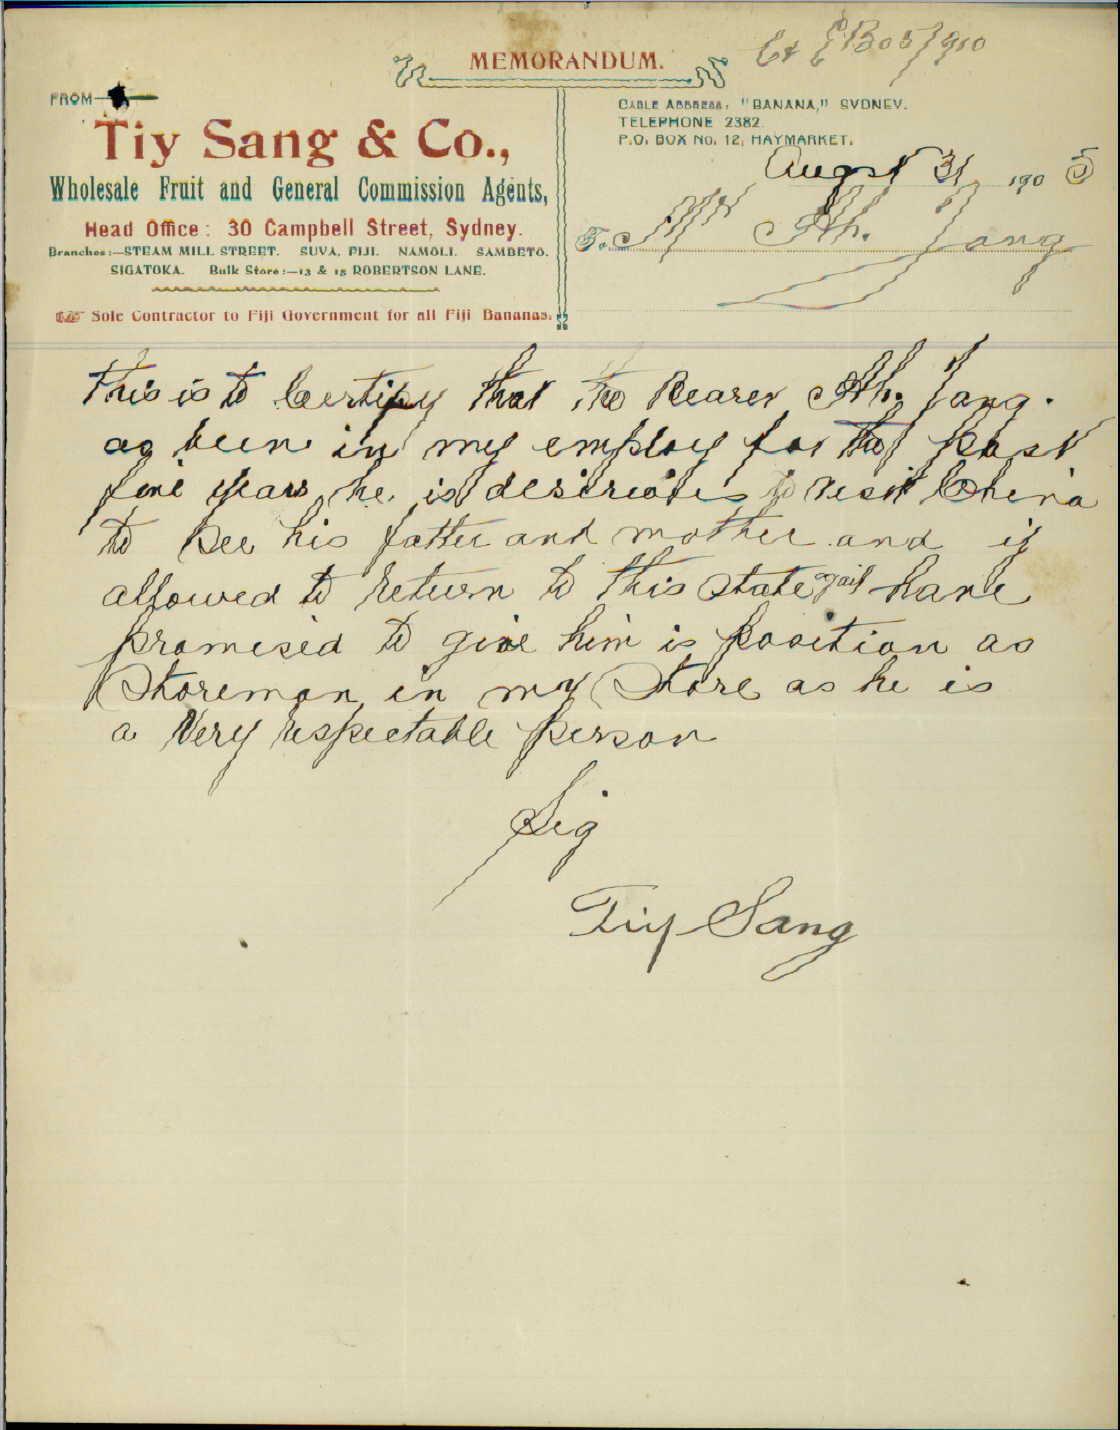 MEMORANDUM.
FROM
Tiy Sang & Co.,
Wholesale Fruit and General Commission Agents,
Head Office: 30 Campbell Street, Sydney.
Branches:—STEAM MILL STREET. SUVA, FIJI. NAMOLI. SAMBETO.
SIGATOKA. Bulk Store:—13 & 15 ROBERTSON LANE.
Sole Contractor to Fiji Government for all Fiji Bananas.
CABLE ADDRESS: "BANANA," SYDNEY.
TELEPHONE 2382.
P.O. BOX No. 12, HAYMARKET.
August 31 1905
To Mr Ah. Jang
This is to Certify that the Bearer Ah. Jang.
as been in my employ for the past
five years he is desireoies to visit China
to see his father and mother and if
allowed to return to this state I have
promised to give him is position as
Storeman in my Store as he is
a Very respectable person
Sig
Tiy Sang